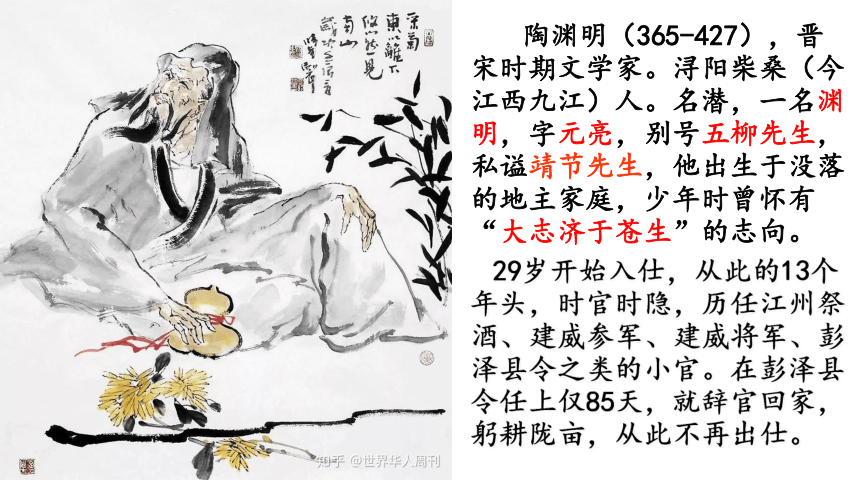 采菊
东篱下
悠然见
南山
陶渊明（365-427），晋
宋时期文学家。浔阳柴桑（今
江西九江）人。名潜，一名渊
明，字元亮，别号五柳先生，
私谥靖节先生，他出生于没落
的地主家庭，少年时曾怀有
“大志济于苍生”的志向。
29岁开始入仕，从此的13个
年头，时官时隐，历任江州祭
酒、建威参军、建威将军、彭
泽县令之类的小官。在彭泽县
令任上仅85天，就辞官回家，
躬耕陇亩，从此不再出仕。
知乎 @世界华人周刊